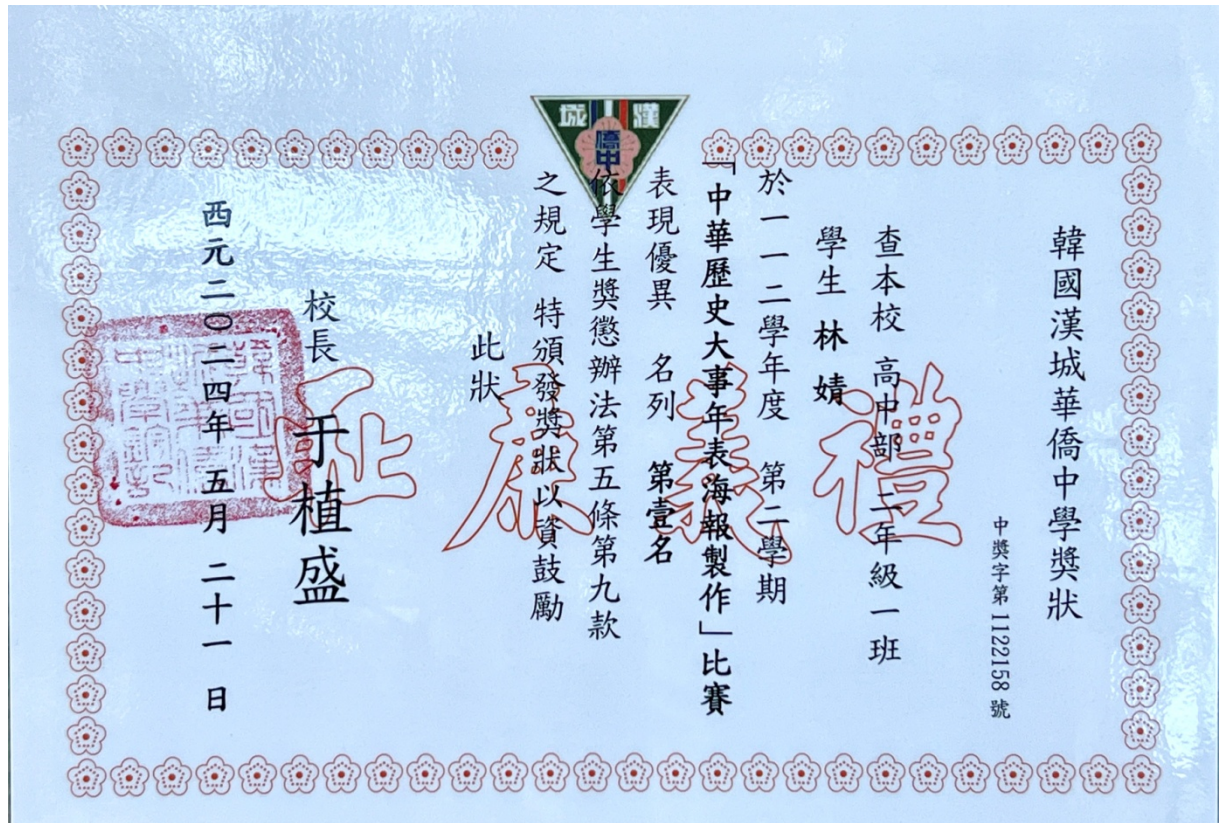 漢城
僑中
禮義廉恥
韓國漢城華僑中學獎狀
中獎字第1122158號
查本校 高中部 二年級一班
學生 林婧
於一一二學年度 第二學期
「中華歷史大事年表海報製作」比賽
表現優異 名列 第壹名
依學生獎懲辦法第五條第九款
之規定 特頒發獎狀以資鼓勵
此狀
校長 于植盛
西元二〇二四年 五月 二十一 日